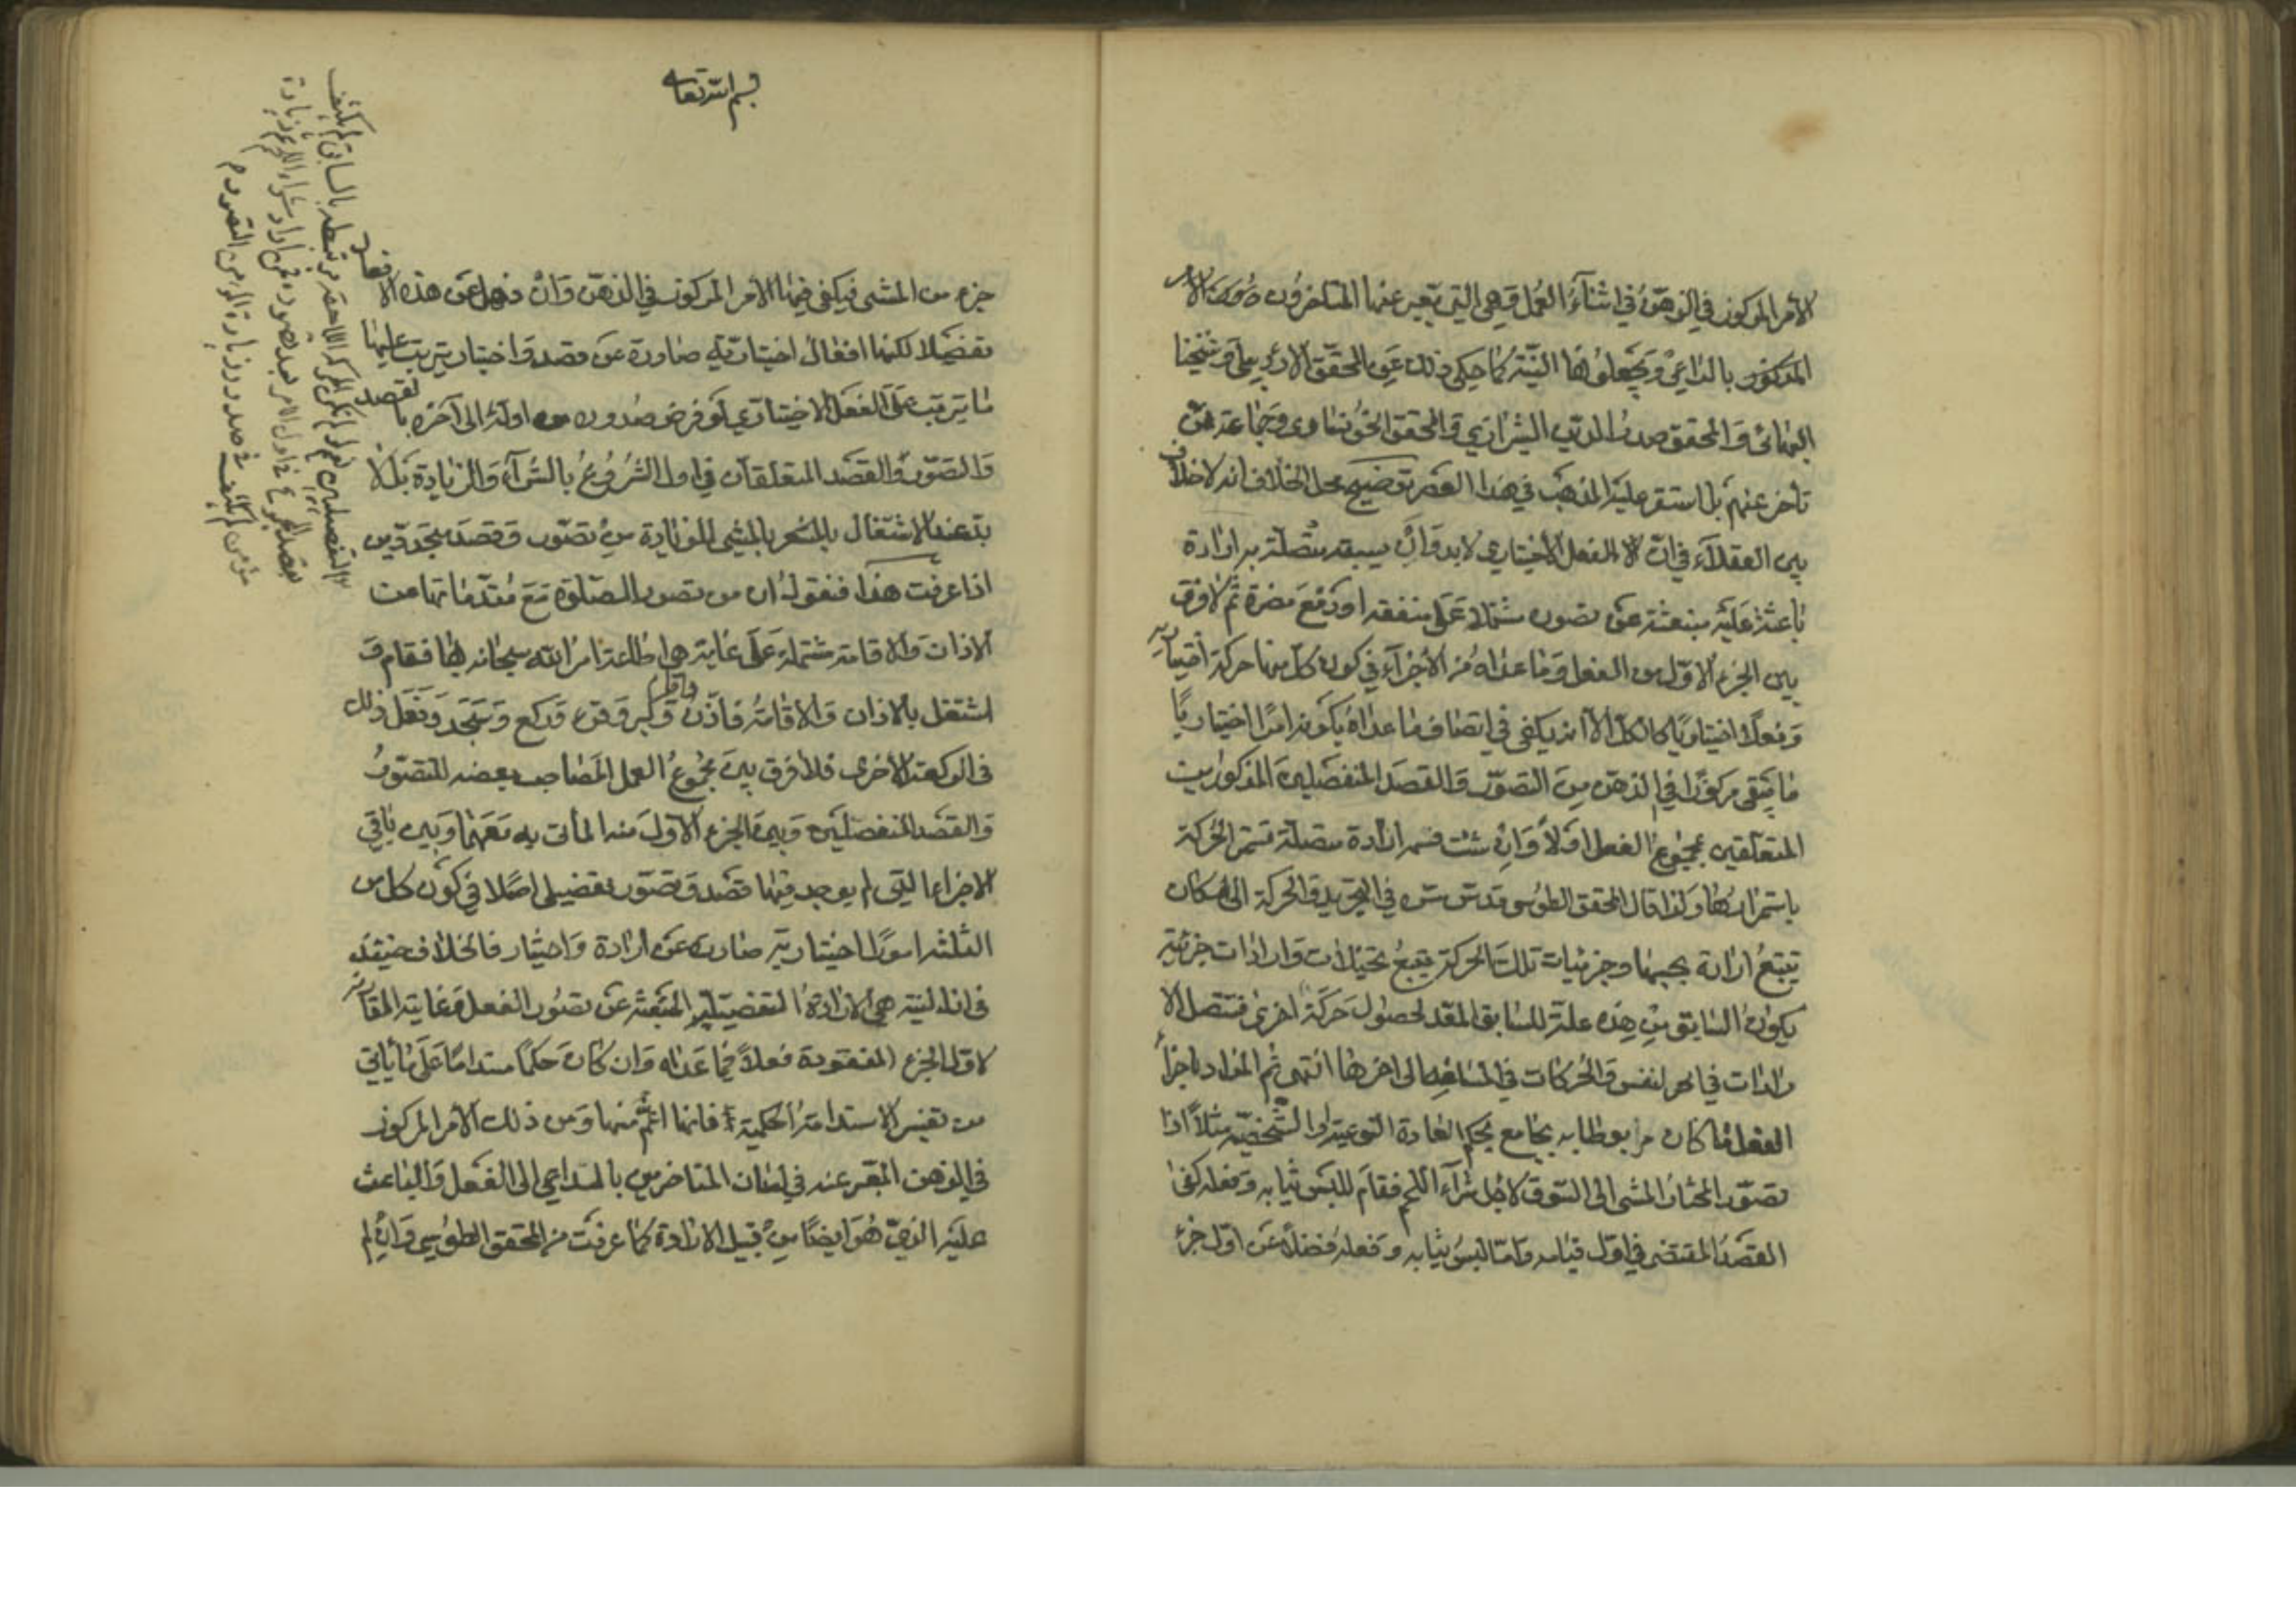 الأمر المركوز في الذهن في اثناء العمل وهي التي يعبر عنها المتاخرون الأمر
المذكور بالداعي ويجعلونها النية كما حكى ذلك عن المحقق الاردبيلي وشيخنا
البهائي والمحقق صدر الدين الشيرازي والمحقق الخونساري وجماعة ممن
تاخر عنهم بل استقر عليه المذهب في هذا العصر توضيح محل الخلاف انه لا خلاف
بين العقلاء في ان الفعل الاختياري لا بد وان يسبقه ارادة
باعثة عليه منبعثة عن تصور مشتملا على منفعة او دفع مضرة ثم لا فرق
بين الجزء الاول من الفعل وما عداه من الاجزاء في كون كل منها حركة اختيارية
وفعلا اختياريا كالكل الا انه يكفي في اتصاف ما عداه بكونه امرا اختياريا
ما يبقى مركوزا في الذهن من التصور والقصد المنفصلين المذكورين
المتعلقين بمجموع الفعل اولا وان شئت فسمه ارادة متصلة تستمر الحركة
باستمرارها ولذا قال المحقق الطوسي قدس سره في التجريد والحركة الى مكان
تتبع ارادة بحسبها وجزئيات تلك الحركة يتبع تخيلات وارادات جزئية
يكون السابق من هذه علة للسابق المعد لحصول حركة اخرى فتتصل الا
رادات في النفس والحركات في المسافة الى اخرها انتهى ثم المراد باجزاء
الفعل ما كان مربوطا به بجامع بحكم العادة النوعية او الشخصية مثلا اذا
تصور المختار المشي الى السوق لاجل شراء اللحم فقام للبس ثيابه وفعله كفى
القصد المقتضى في اول قيامه واما لبس ثيابه وفعله فضلا عن اول جزء
بسم الله تعالى
جزء من المشي فيكفي فيها الأمر المركوز في الذهن وان ذهل عن هذه الافعال
تفصيلا لكنها افعال اختيارية صادرة عن قصد واختيار يترتب عليها
ما يترتب على الفعل الاختياري لو فرض صدوره من اوله الى آخره بالقصد
والتصور والقصد المتعلقان في اول الشروع بالشراء والزيادة بل لا
بد عند الاشتغال بالمشي للزيادة من تصور وقصد متجددين
اذا عرفت هذا فنقول ان من تصور الصلوة مع مقدماتها من
الاذان والاقامة مشتملة على غاية هي اطاعة امر الله سبحانه بها فقام و
اشتغل بالاذان والاقامة فاذن واقام وكبر وقرء وركع وسجد وفعل ذلك
في الركعة الاخرى فلا فرق بين مجموع العمل المصاحب بعضه للتصور
والقصد المنفصلين وبين الجزء الاول منه المأتي به معهما وبين باقي
الاجزاء التي لم يوجد فيها قصد وتصور تفصيلي اصلا في كون كل من
الثلثة امورا اختيارية صادرة عن ارادة واختيار فالخلاف حينئذ
في ان النية هي الارادة التفصيلية المنبعثة عن تصور الفعل وغايته المقارنة
لاول الجزء المفقودة فعلا فيما عداه وان كان حكما مستداما على ما ياتي
من تفسير الاستدامة الحكمية او انها اعم منها ومن ذلك الأمر المركوز
في الذهن المعبر عنه في لسان المتاخرين بالداعي الى الفعل والباعث
عليه الذي هو ايضا من قبيل الارادة كما عرفت من المحقق الطوسي وان لم
التفصيلين نعم لو لم يكن الحركة اللاحقة مرتبطة بالسابق لم يكتف
بقصد المجموع في اول الامر بعد تصوره فمن اراد شراء اللحم ثم زيادة
مؤمن لم يكتف في صدور زيارة المؤمن التصور